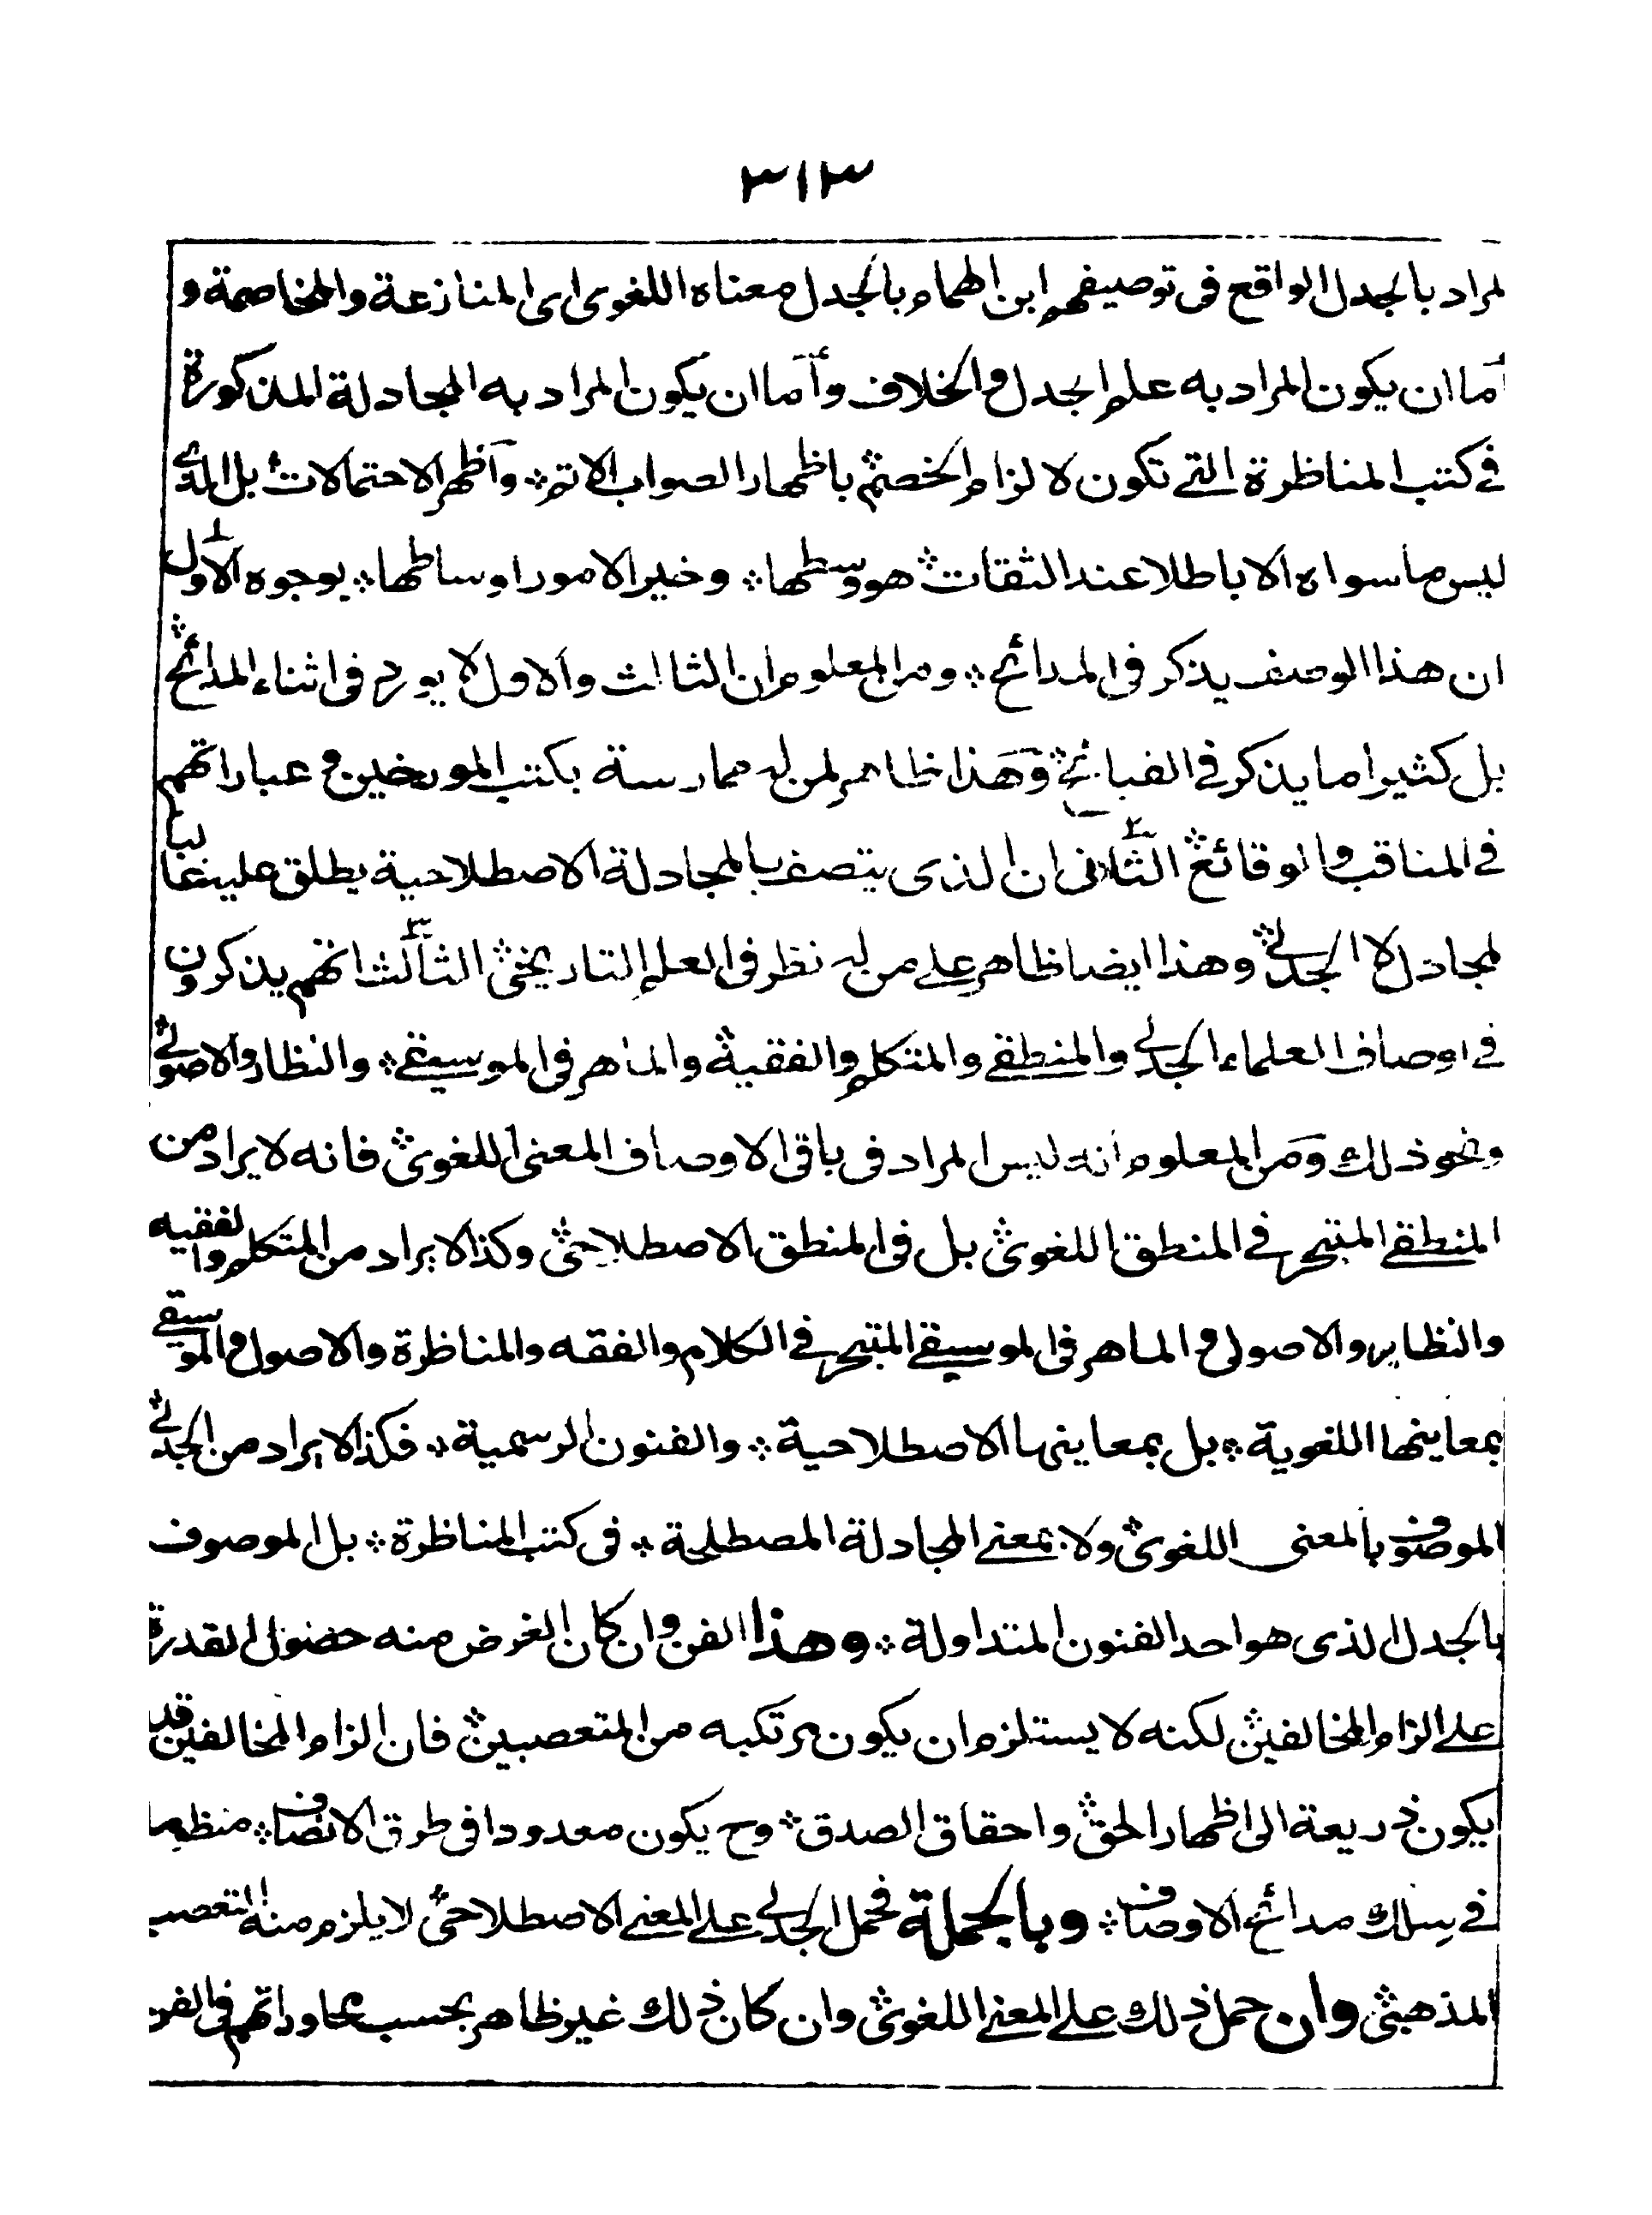 ٣١٣
لمراد بالجدل الواقع فى توصيفهم ابن الهمام بالجدل معناه اللغوى اى المنازعة والمخاصمة و
اما ان يكون المراد به علم الجدل والخلاف وأما ان يكون المراد به المجادلة المذكورة
فى كتب المناظرة التى تكون لا لزام الخصم باظهار الصواب الاتم واظهر الاحتمالات بل الذى
ليس ما سواه الا باطلا عند الثقات هو وسطها وخير الامور اوساطها بوجوه الاول
ان هذا الوصف يذكر فى المدائح ومن المعلوم ان الثالث والاول لا يورد فى اثناء المدائح
بل كثيرا ما يذكر فى القبائح وهذا ظاهر لمن له ممارسة بكتب المورخين وعباراتهم
فى المناقب والوقائع الثانى ان الذى يتصف بالمجادلة الاصطلاحية يطلق عليه غالبا
لمجادل لا الجدلى وهذا ايضا ظاهر على من له نظر فى العلم التاريخى الثالث انهم يذكرون
فى اوصاف العلماء الجدلى والمنطقى والمتكلم والفقيه والماهر فى الموسيقى والنظار والاصولى
ونحو ذلك ومن المعلوم انه ليس المراد فى باقى الاوصاف المعنى اللغوى فانه لا يراد من
المنطقى المتبحر فى المنطق اللغوى بل فى المنطق الاصطلاحى وكذا لا يراد من المتكلم والفقيه
والنظار والاصولى والماهر فى الموسيقى المتبحر فى الكلام والفقه والمناظرة والاصول والموسيقى
بمعاينها اللغوية بل بمعاينها الاصطلاحية والفنون الرسمية فكذا لا يراد من الجدلى
الموصوف بالمعنى اللغوى ولا بمعنى المجادلة المصطلحة فى كتب المناظرة بل الموصوف
بالجدل الذى هو احد الفنون المتداولة وهذا الفن وان كان الغرض منه حصول القدرة
على الزام المخالفين لكنه لا يستلزم ان يكون مرتكبه من المتعصبين فان الزام المخالفين قد
يكون ذريعة الى اظهار الحق واحقاق الصدق وح يكون معدودا فى طرق الانصاف منظما
فى سلك مدائح الاوصاف وبالجملة فحمل الجدلى على المعنى الاصطلاحى لا يلزم منه التعصب
المذهبى وان حمل ذلك على المعنى اللغوى وان كان ذلك غير ظاهر بحسب محاوراتهم فى الفن